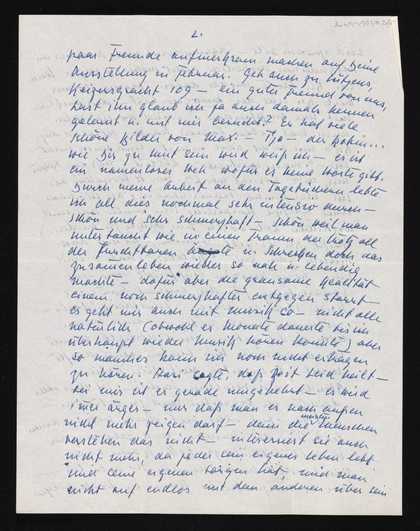 2.
paar Freunde aufmerksam machen auf Deine
Ausstellung im Februar. Geh auch zu Lütjens,
Keizersgracht 109 – ein guter Freund von uns,
hast ihn glaub ich ja auch damals kennen
gelernt in mit mir besucht? Er hat viele
schöne Bilder von Max. – Tja – der
wie Dir zu mut sein wird weiß ich – es ist
ein namenloses Weh wofür es keine Worte gibt.
Durch meine Arbeit an den Tagebüchern lebte
ich all dies nochmal sehr intensiv durch –
schön und sehr schmerzhaft – schön weil man
untertaucht wie in einen Traum der trotz all
der furchtbaren Schrecken doch das
zusammenleben wieder so nah u. lebendig
machte – dafür aber die grausame Realität
einem noch schmerzhafter entgegen starrt
es geht mir auch mit Musik so – nicht alle
natürlich (obwohl es Monate dauerte bis ich
überhaupt wieder Musik hören konnte) aber
so manches kann ich noch nicht ertragen
zu hören. sagte, daß Zeit Leid heilt –
bei mir ist es gerade umgekehrt – es wird
immer ärger – nur daß man es nach außen
nicht mehr zeigen darf – denn die meisten Menschen
verstehen das nicht – interessiert sie auch
nicht mehr, da jeder sein eigenes Leben lebt
und seine eigenen Sorgen hat, und man
nicht auf endlos mit dem anderen über sein